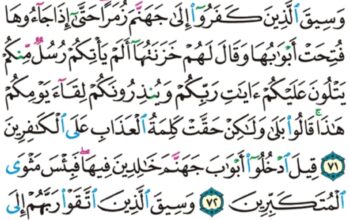 وَسِيقَ ٱلَّذِينَ كَفَرُوٓا۟ إِلَىٰ جَهَنَّمَ زُمَرًا حَتَّىٰٓ إِذَا جَآءُوهَا
فُتِحَتْ أَبْوَٰبُهَا وَقَالَ لَهُمْ خَزَنَتُهَآ أَلَمْ يَأْتِكُمْ رُسُلٌ مِّنكُمْ
يَتْلُونَ عَلَيْكُمْ ءَايَٰتِ رَبِّكُمْ وَيُنذِرُونَكُمْ لِقَآءَ يَوْمِكُمْ
هَٰذَا ۚ قَالُوا۟ بَلَىٰ وَلَٰكِنْ حَقَّتْ كَلِمَةُ ٱلْعَذَابِ عَلَى ٱلْكَٰفِرِينَ
٧١ قِيلَ ٱدْخُلُوٓا۟ أَبْوَٰبَ جَهَنَّمَ خَٰلِدِينَ فِيهَا ۖ فَبِئْسَ مَثْوَى
ٱلْمُتَكَبِّرِينَ ٧٢ وَسِيقَ ٱلَّذِينَ ٱتَّقَوْا۟ رَبَّهُمْ إِلَى